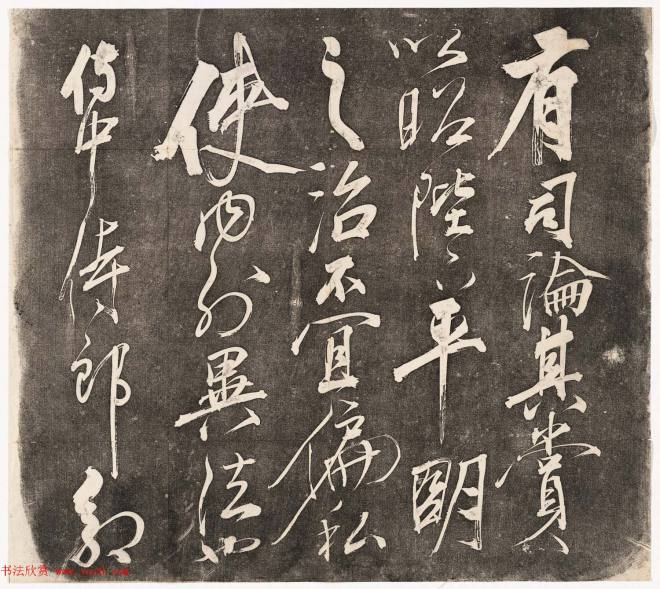 有司論其賞
以昭陛下平明
之治不宜偏私
使内外異法也
侍中侍郎郭
书法欣赏